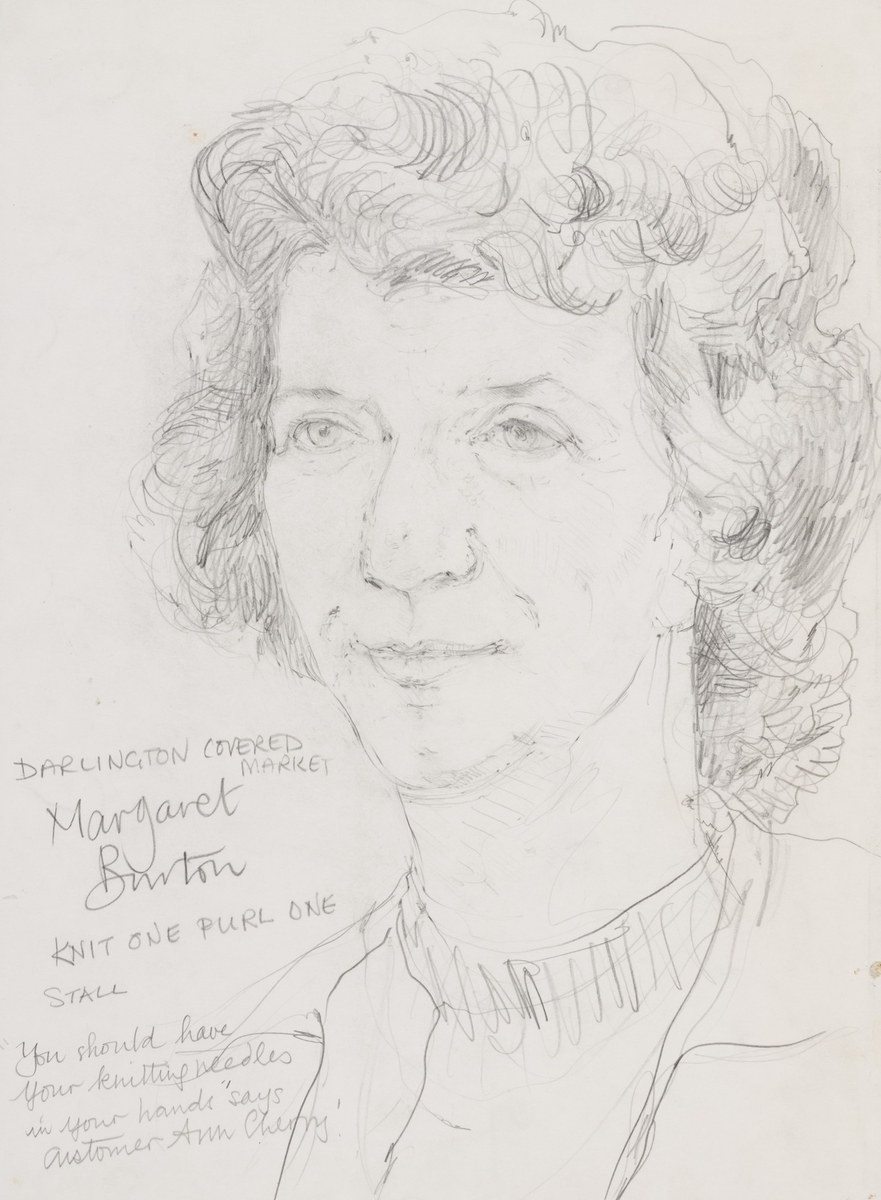 DARLINGTON COVERED
MARKET
Margaret
Burton
KNIT ONE PURL ONE
STALL
You should have
your knitting needles
in your hands" says
customer Ann Cherry!